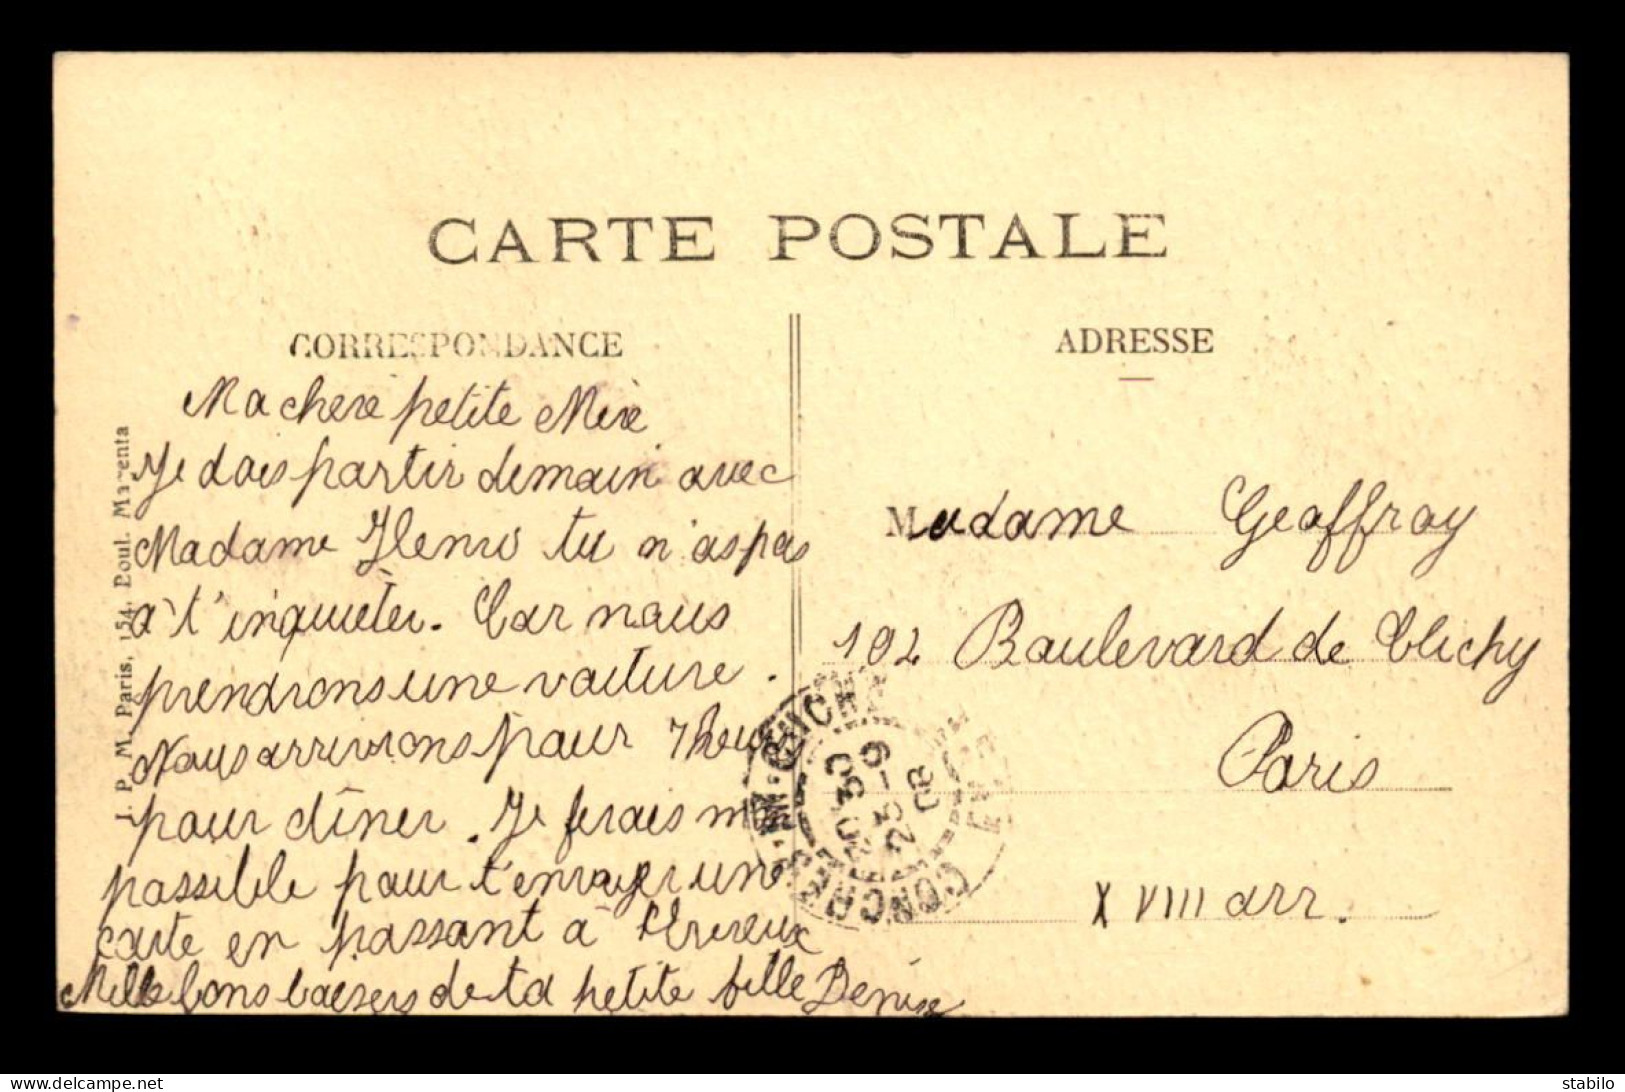 CARTE POSTALE
CORRESPONDANCE
Ma chere petite Mère
Je dois partir demain avec
Madame tu n'as pas
a t'inquiéter. Car nous
prendrons une voiture.
Nous arriverons pour 7 heures
pour dîner. Je ferais mon
possible pour t'envoyer une
carte en passant à
Mille bons baisers de ta petite fille Denise
J. P. M. Paris, 154, Boul. Magenta
ADRESSE
Madame Geoffroy
102 Boulevard de Clichy
Paris
XVIII arr.
10 30
25-9
08
stabilo